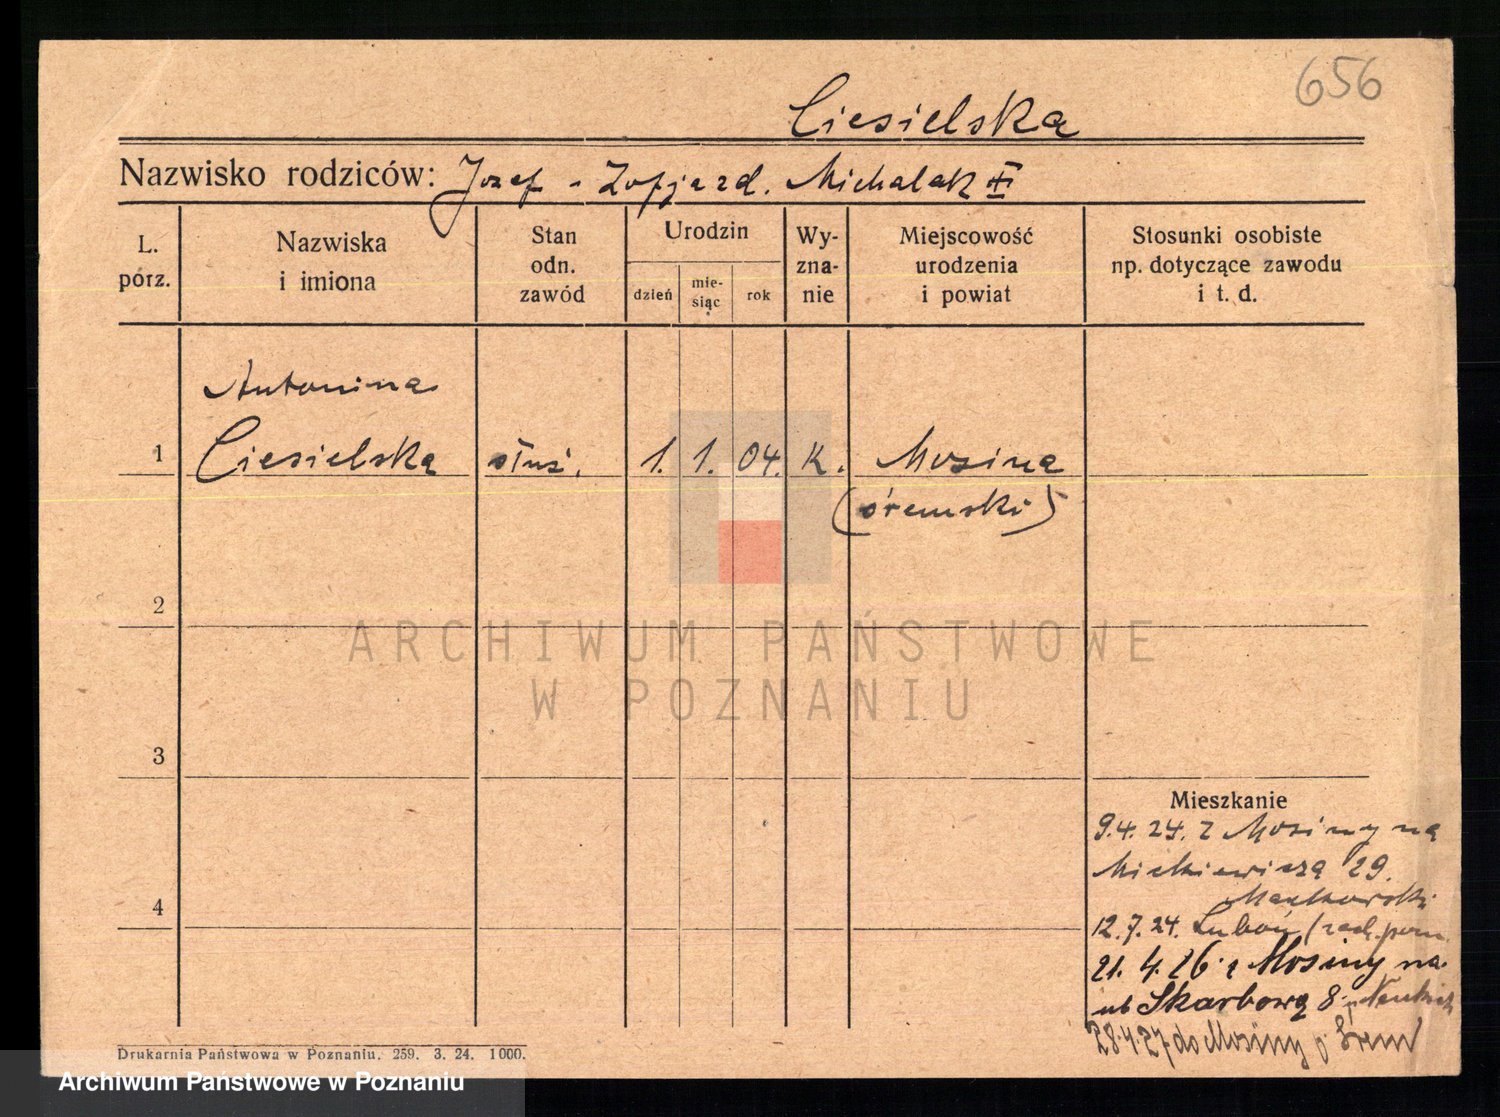 656
Ciesielska
Nazwisko rodziców: Jozef - Zofja zd. Michalak
L. porz.
Nazwiska i imiona
Stan odn. zawód
Urodzin
dzień
mie-siąc
rok
Wy-zna-nie
Miejscowość urodzenia i powiat
Stosunki osobiste np. dotyczące zawodu i t. d.
Antonina
1 Ciesielska służ. 1. 1. 04. K. Mosina
(śremski)
2
ARCHIWUM PAŃSTWOWE
W POZNANIU
3
Mieszkanie
9.4.24. z Mosiny na
Mickiewicza 29.
4
12.7.24. Luboń
21.4.26. z Mosiny na
Skarbową 8
28.4.27 do Mosiny p. Śrem
Drukarnia Państwowa w Poznaniu. 259. 3. 24. 1000.
Archiwum Państwowe w Poznaniu